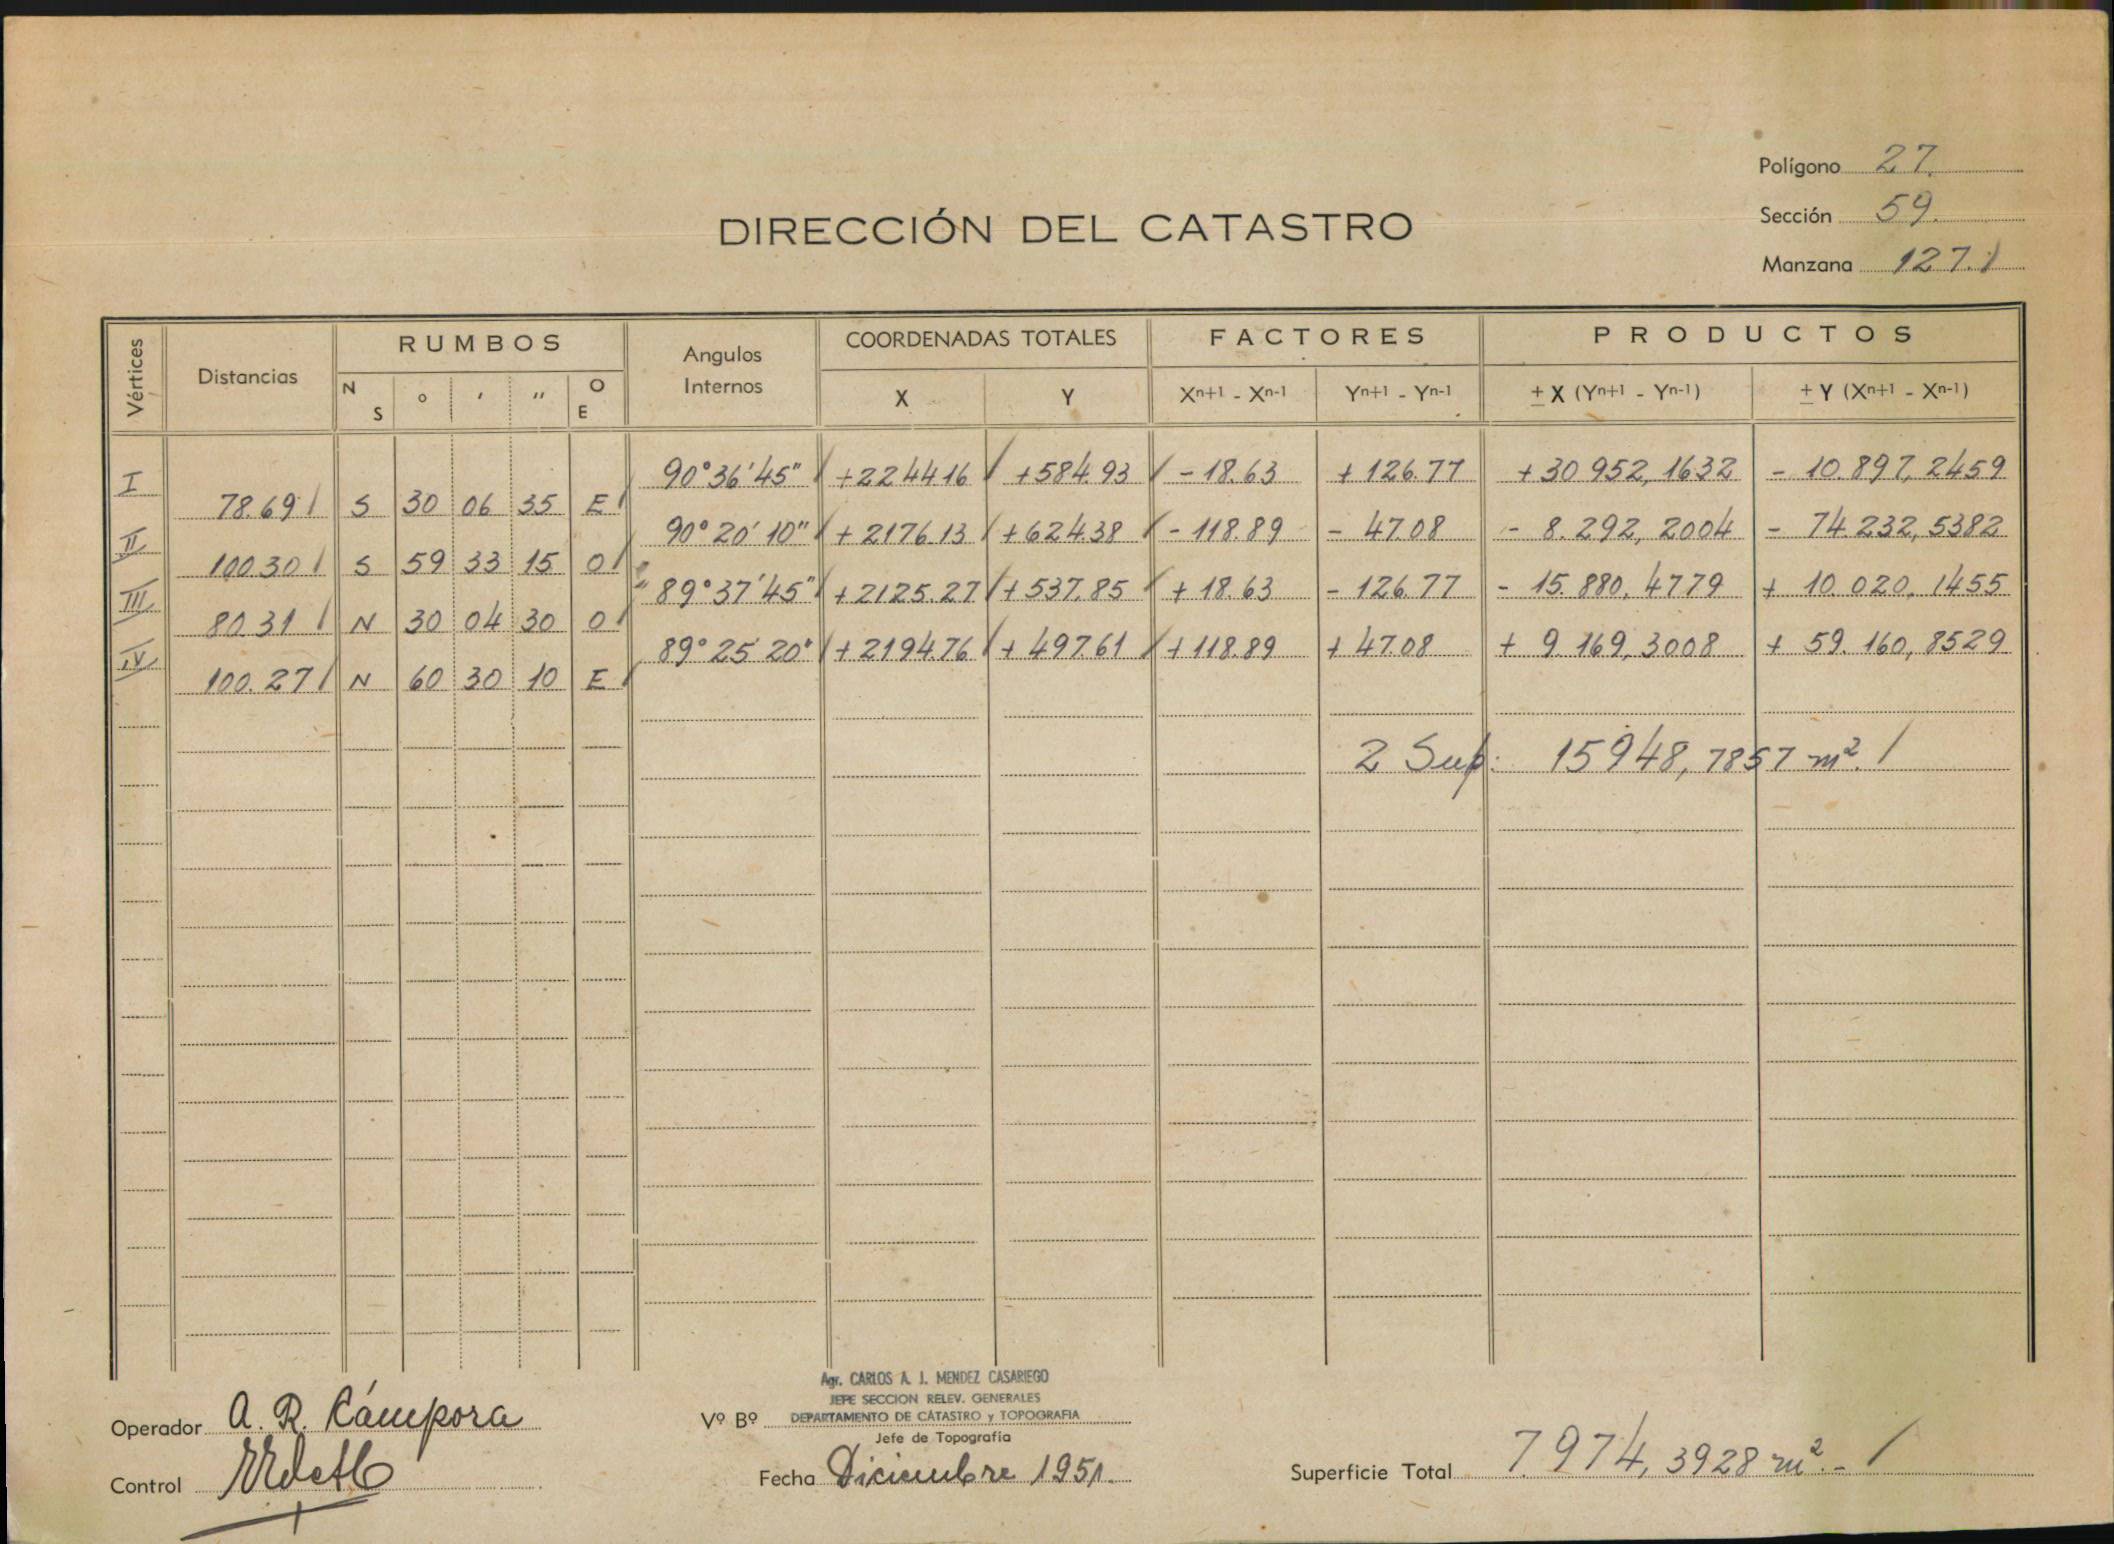 Polígono 27.
Sección 59.
Manzana 127.
DIRECCIÓN DEL CATASTRO
Vértices Distancias RUMBOS Angulos Internos COORDENADAS TOTALES FACTORES PRODUCTOS
N S ° ' " O E X Y Xn+1 - Xn-1 Yn+1 - Yn-1 ± X (Yn+1 - Yn-1) ± Y (Xn+1 - Xn-1)
I 90°36'45" +2244.16 +584.93 -18.63 +126.77 +30952,1632 -10.897,2459
78.69 S 30 06 35 E
II 90°20'10" +2176.13 +624.38 -118.89 -47.08 -8.292,2004 -74.232,5382
100.30 S 59 33 15 O
III 89°37'45" +2125.27 +537.85 +18.63 -126.77 -15.880,4779 +10.020,1455
80.31 N 30 04 30 O
IV 89°25'20" +2194.76 +497.61 +118.89 +47.08 +9.169,3008 +59.160,8529
100.27 N 60 30 10 E
2 Sup: 15948,7857 m²
Agr. CARLOS A. J. MENDEZ CASARIEGO
JEFE SECCION RELEV. GENERALES
DEPARTAMENTO DE CATASTRO y TOPOGRAFIA
Operador A. R. Cámpora Vº Bº
Jefe de Topografía
Control Fecha Diciembre 1951. Superficie Total 7.974,3928 m².-